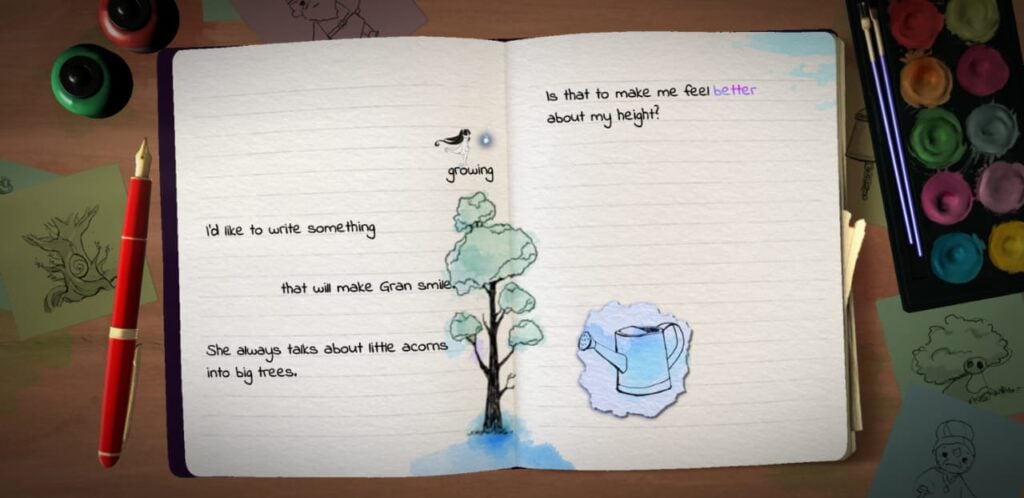 growing
I'd like to write something
that will make Gran smile.
She always talks about little acorns
into big trees.
Is that to make me feel better
about my height?